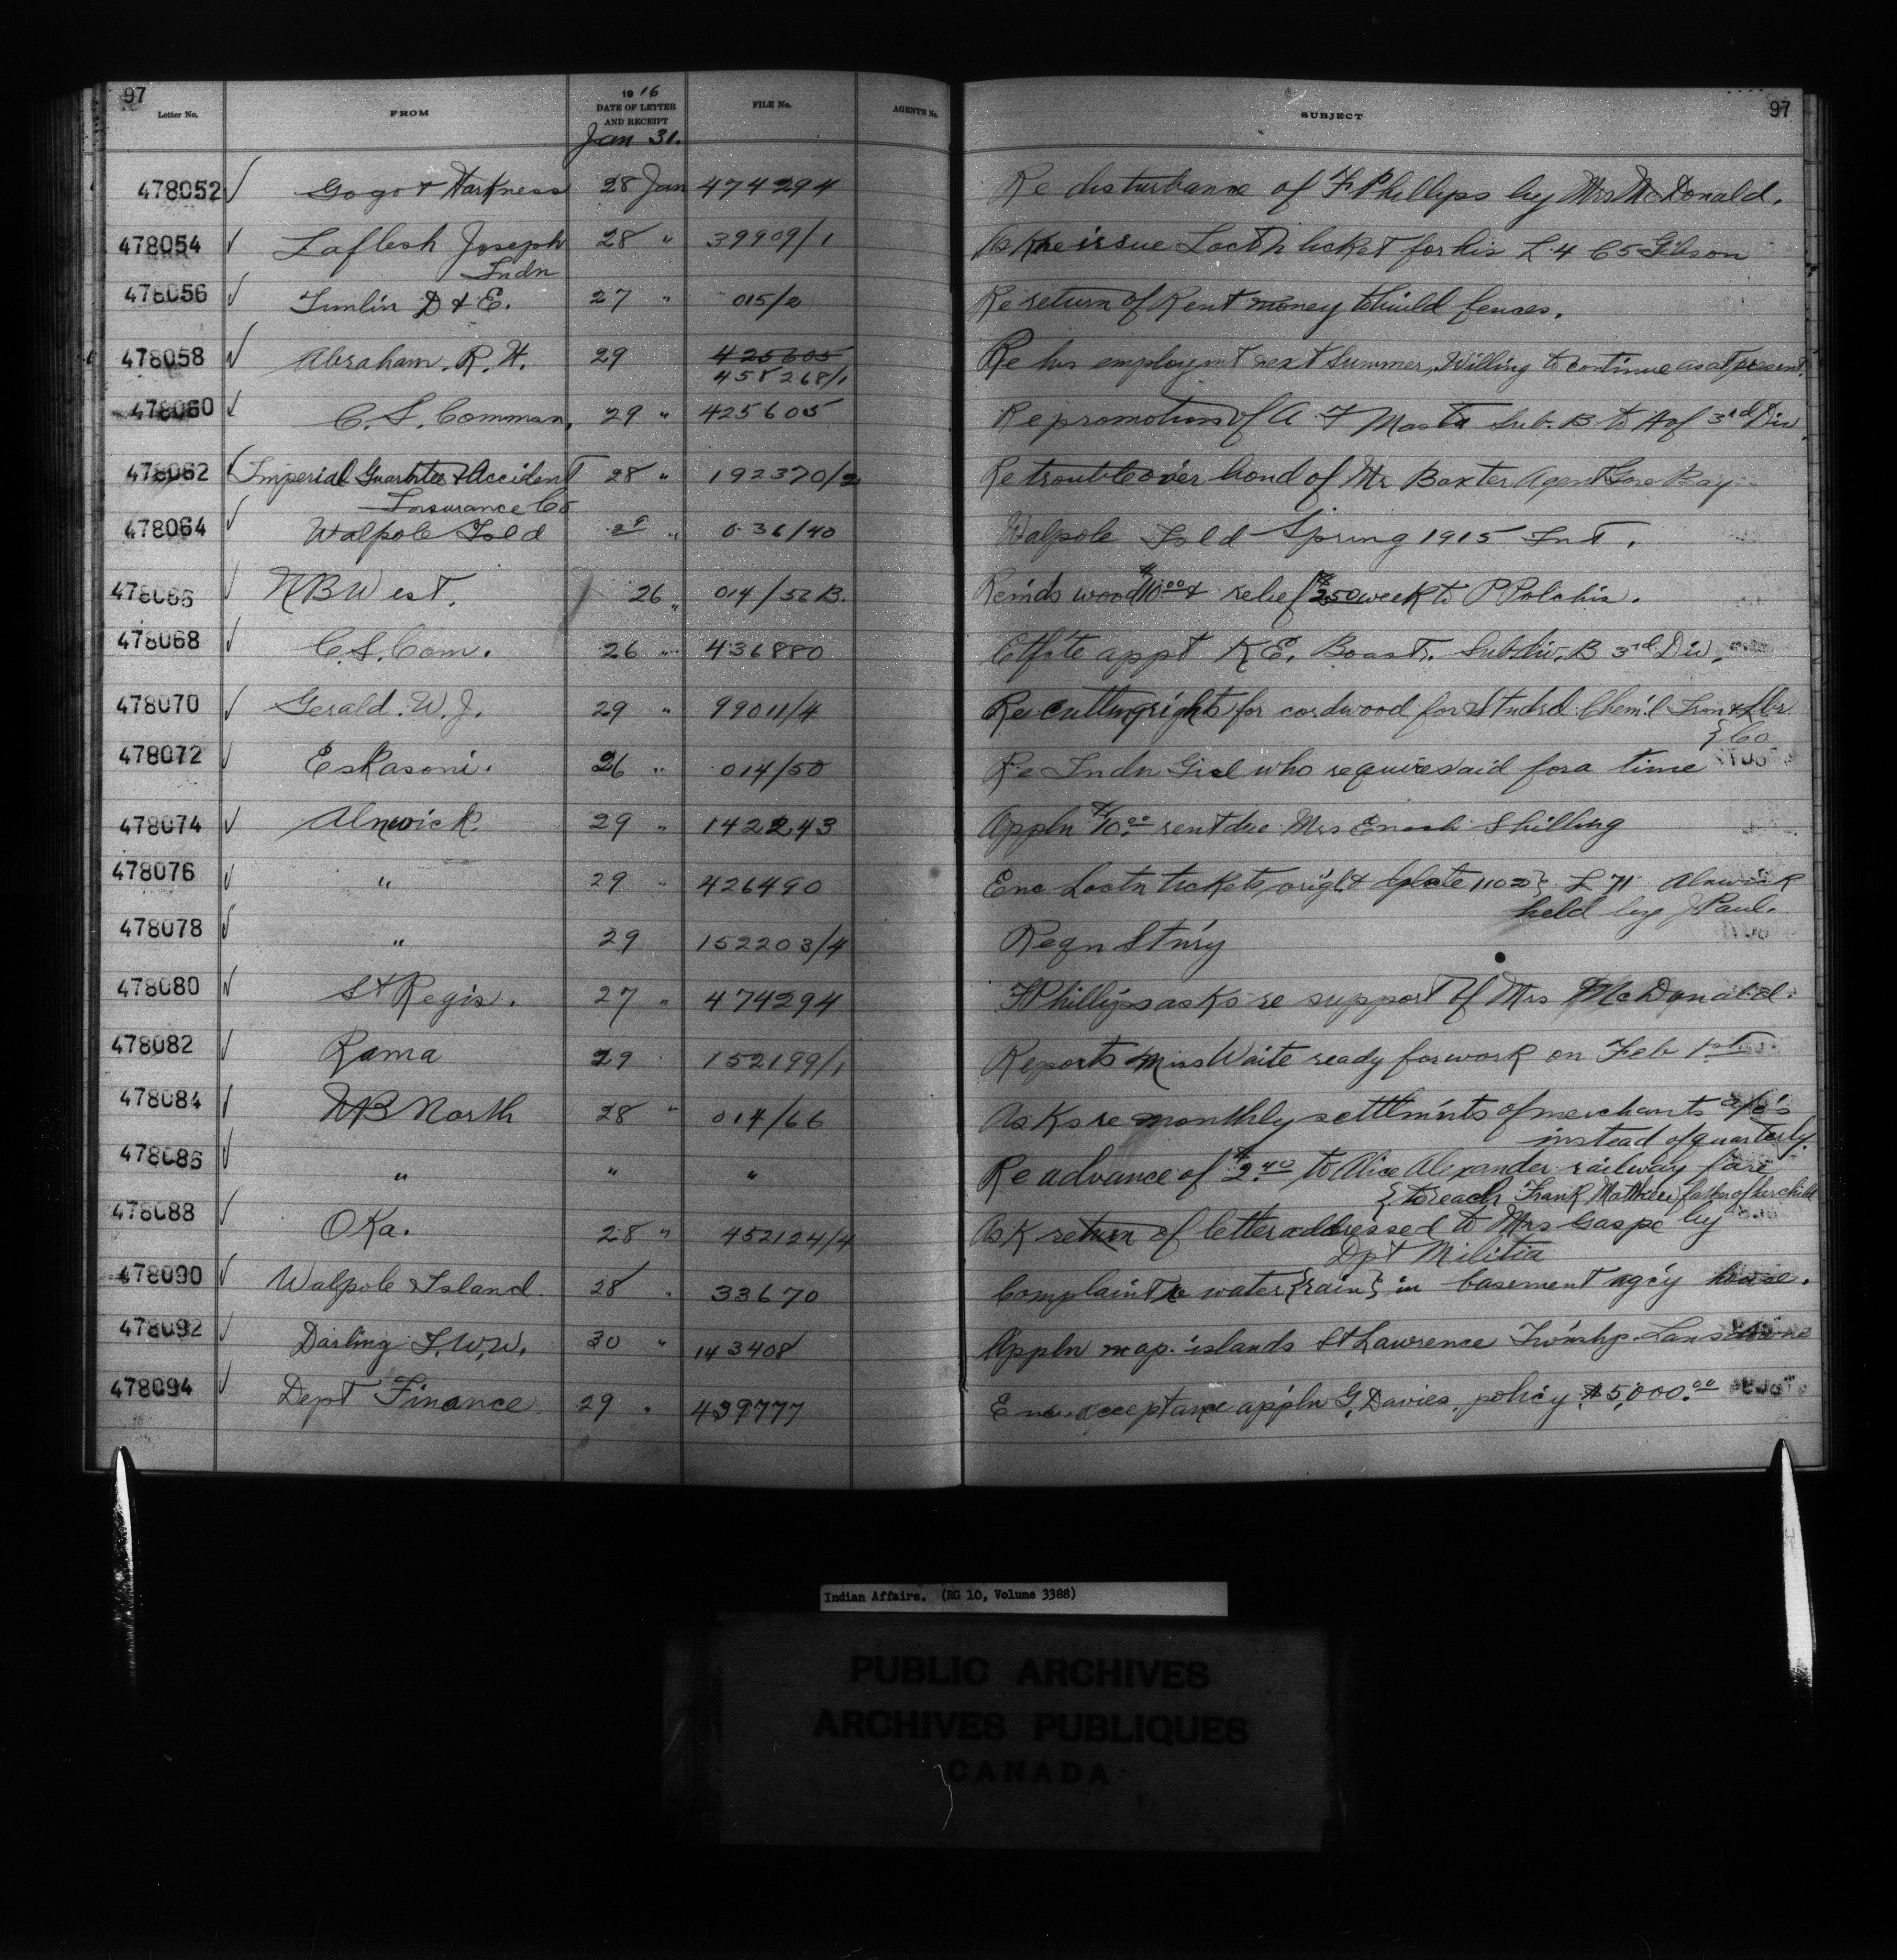 97
97
Letter No. FROM 1916 DATE OF LETTER AND RECEIPT FILE No. AGENT'S No. SUBJECT
Jan 31.
478052 Gogo & Harkness 28 Jan 474294 Re disturbance of F Phillips by Mrs McDonald.
478054 Laflesh Joseph 28 " 39909/1 Ask re issue Loctn ticket for his L 4 C5 Gibson
Indn
478056 Tumlin D & E. 27 " 015/2 Re return of Rent money to build fences.
478058 Abraham. R. H. 29 425605 Re his employmt next Summer, Willing to continue as at present.
458268/1
478060 C. S. Commsn, 29 " 425605 Re promotion of A. F Masta Sub. B to A of 3rd Div.
478062 Imperial Guarantee & Accident 28 " 192370/2 Re trouble over bond of Mr Baxter Agent Gore Bay
Insurance Co
478064 Walpole Isld " 036/40 Walpole Isld Spring 1915 Int.
478066 NB West. 26 " 014/56 B. Remds wood $10.00 & relief $2.50 week to P Polchis.
478068 C. S. Com. 26 " 436880 Ctfcte appt K E. Boast. Subdiv. B 3rd Div.
478070 Gerald. W. J. 29 " 99011/4 Re cutting rights for cordwood for Stndrd Chem'l Iron & Lbr.
} Co
478072 Eskasoni. 26 " 014/50 Re Indn Girl who requires aid for a time
478074 Alnwick. 29 " 142243 Appln $10.00 rent due Mrs Enoch Shilling
478076 " 29 " 426490 Enc Loctn tickets, orig'l & dplcte 1102} L 71 Alnwick
held by J Paul.
478078 " 29 152203/4 Reqn Stn'ry
478080 St Regis. 27 " 474294 F Phillips asks re support of Mrs McDonald.
478082 Rama 29 " 152199/1 Reports Miss Waite ready for work on Feb 1st
478084 NB North 28 " 014/66 Asks re monthly settlm'nts of merchants a/c's
instead of quarterly.
478086 " " " Re advance of $2.40 to Alice Alexander railway fare
{ to reach Frank Matthew father of her child
478088 Oka. 28 " 452124/4 Ask return of letter addressed to Mrs Gaspe by
Dpt Militia
478090 Walpole Island. 28 " 33670 Complaint re water {rain} in basement ag'cy house.
478092 Darling J. W. W. 30 " 143408 Appln map. islands St Lawrence Twnshp. Lansdowne
478094 Dept Finance 29 " 439777 Enc. acceptance appln G. Davies, policy $5,000.00
Indian Affairs. (RG 10, Volume 3388)
PUBLIC ARCHIVES
ARCHIVES PUBLIQUES
CANADA